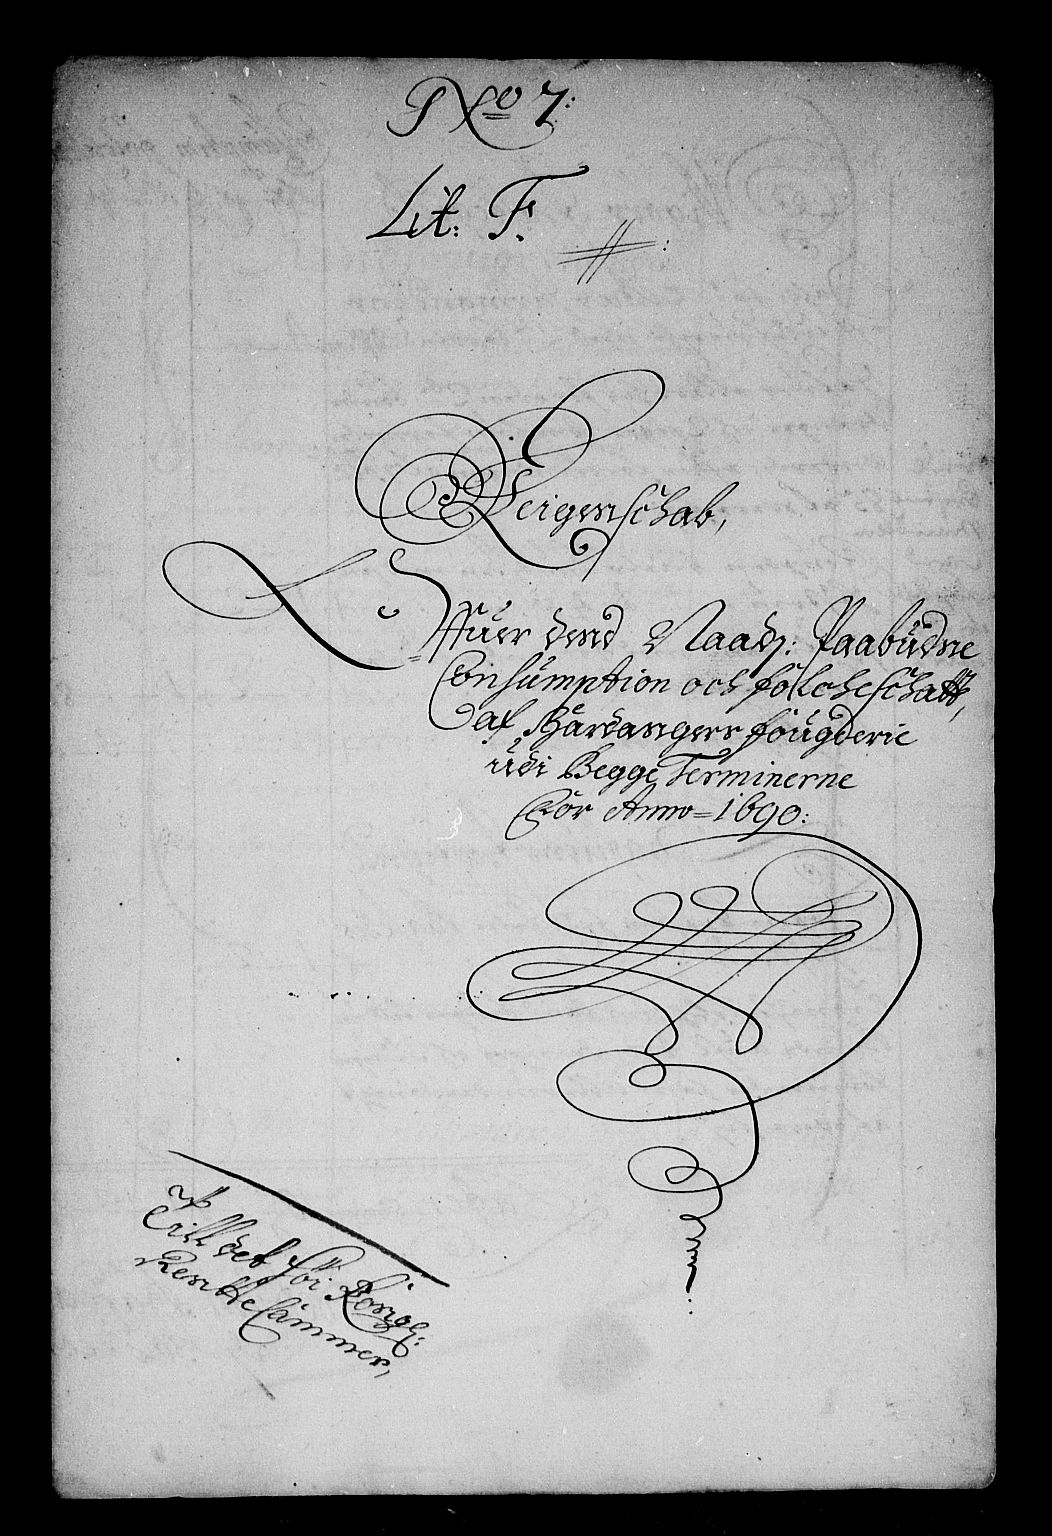 No 7:
Lit: F.
Reigenschab,
Offuer dend Naadg: Paabudne
Consumption och folcheschatt,
af Hardangers fougderie
udi Begge Terminerne
for Anno = 1690:
Till det høi: Kongl:
Rentte Cammer,